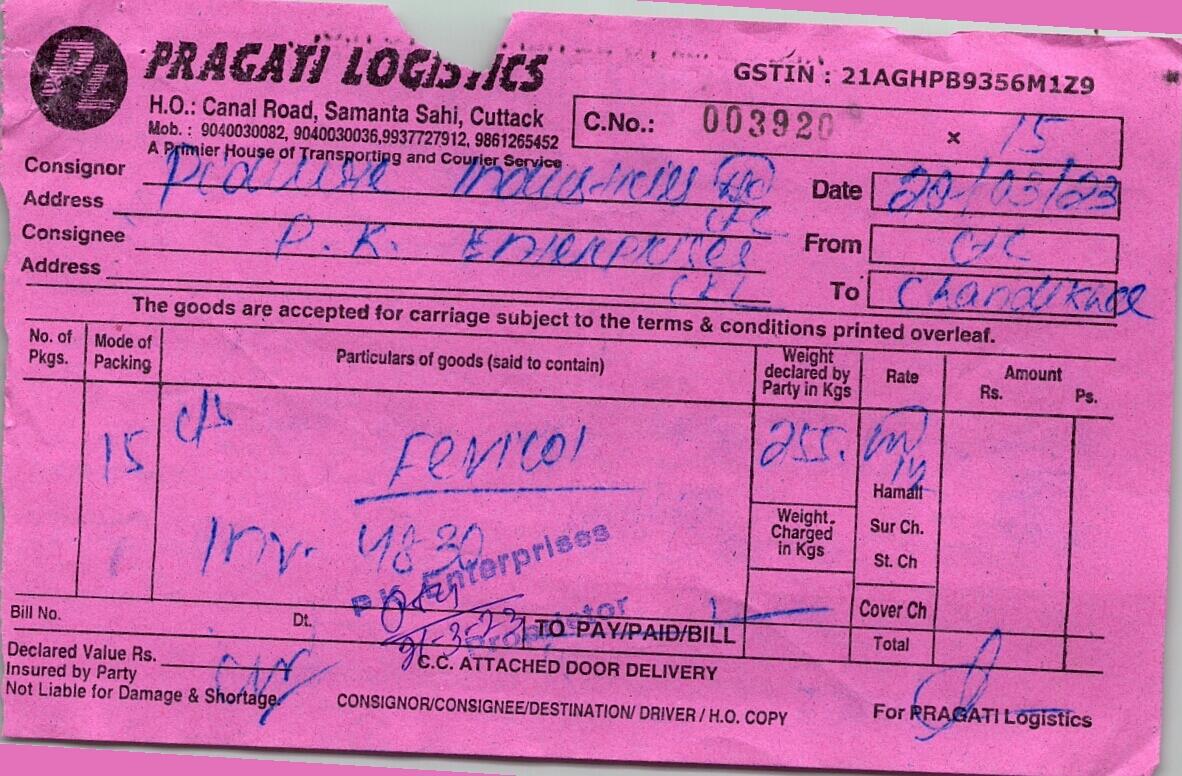 PRAGATI LOGISTICS
GSTIN : 21AGHPB9356M1Z9
H.O.: Canal Road, Samanta Sahi, Cuttack
Mob. : 9040030082, 9040030036,9937727912, 9861265452
A Primier House of Transporting and Courier Service
C.No.: 003920 x 15
Consignor Industries
Date
Address
Consignee P. K. Enterprises
From CTC
Address
To Chandikhole
The goods are accepted for carriage subject to the terms & conditions printed overleaf.
No. of Pkgs.
Mode of Packing
Particulars of goods (said to contain)
Weight declared by Party in Kgs
Rate
Amount
Rs. Ps.
15 c/s Fevicol 255.
Hamali
Inv. 4830
Weight. Charged in Kgs
Sur Ch.
St. Ch
P.K. Enterprises
Proprietor
Cover Ch
Bill No. Dt.
21-3-23
TO PAY/PAID/BILL
Total
Declared Value Rs.
C.C. ATTACHED DOOR DELIVERY
Insured by Party
Not Liable for Damage & Shortage.
CONSIGNOR/CONSIGNEE/DESTINATION/ DRIVER / H.O. COPY
For PRAGATI Logistics